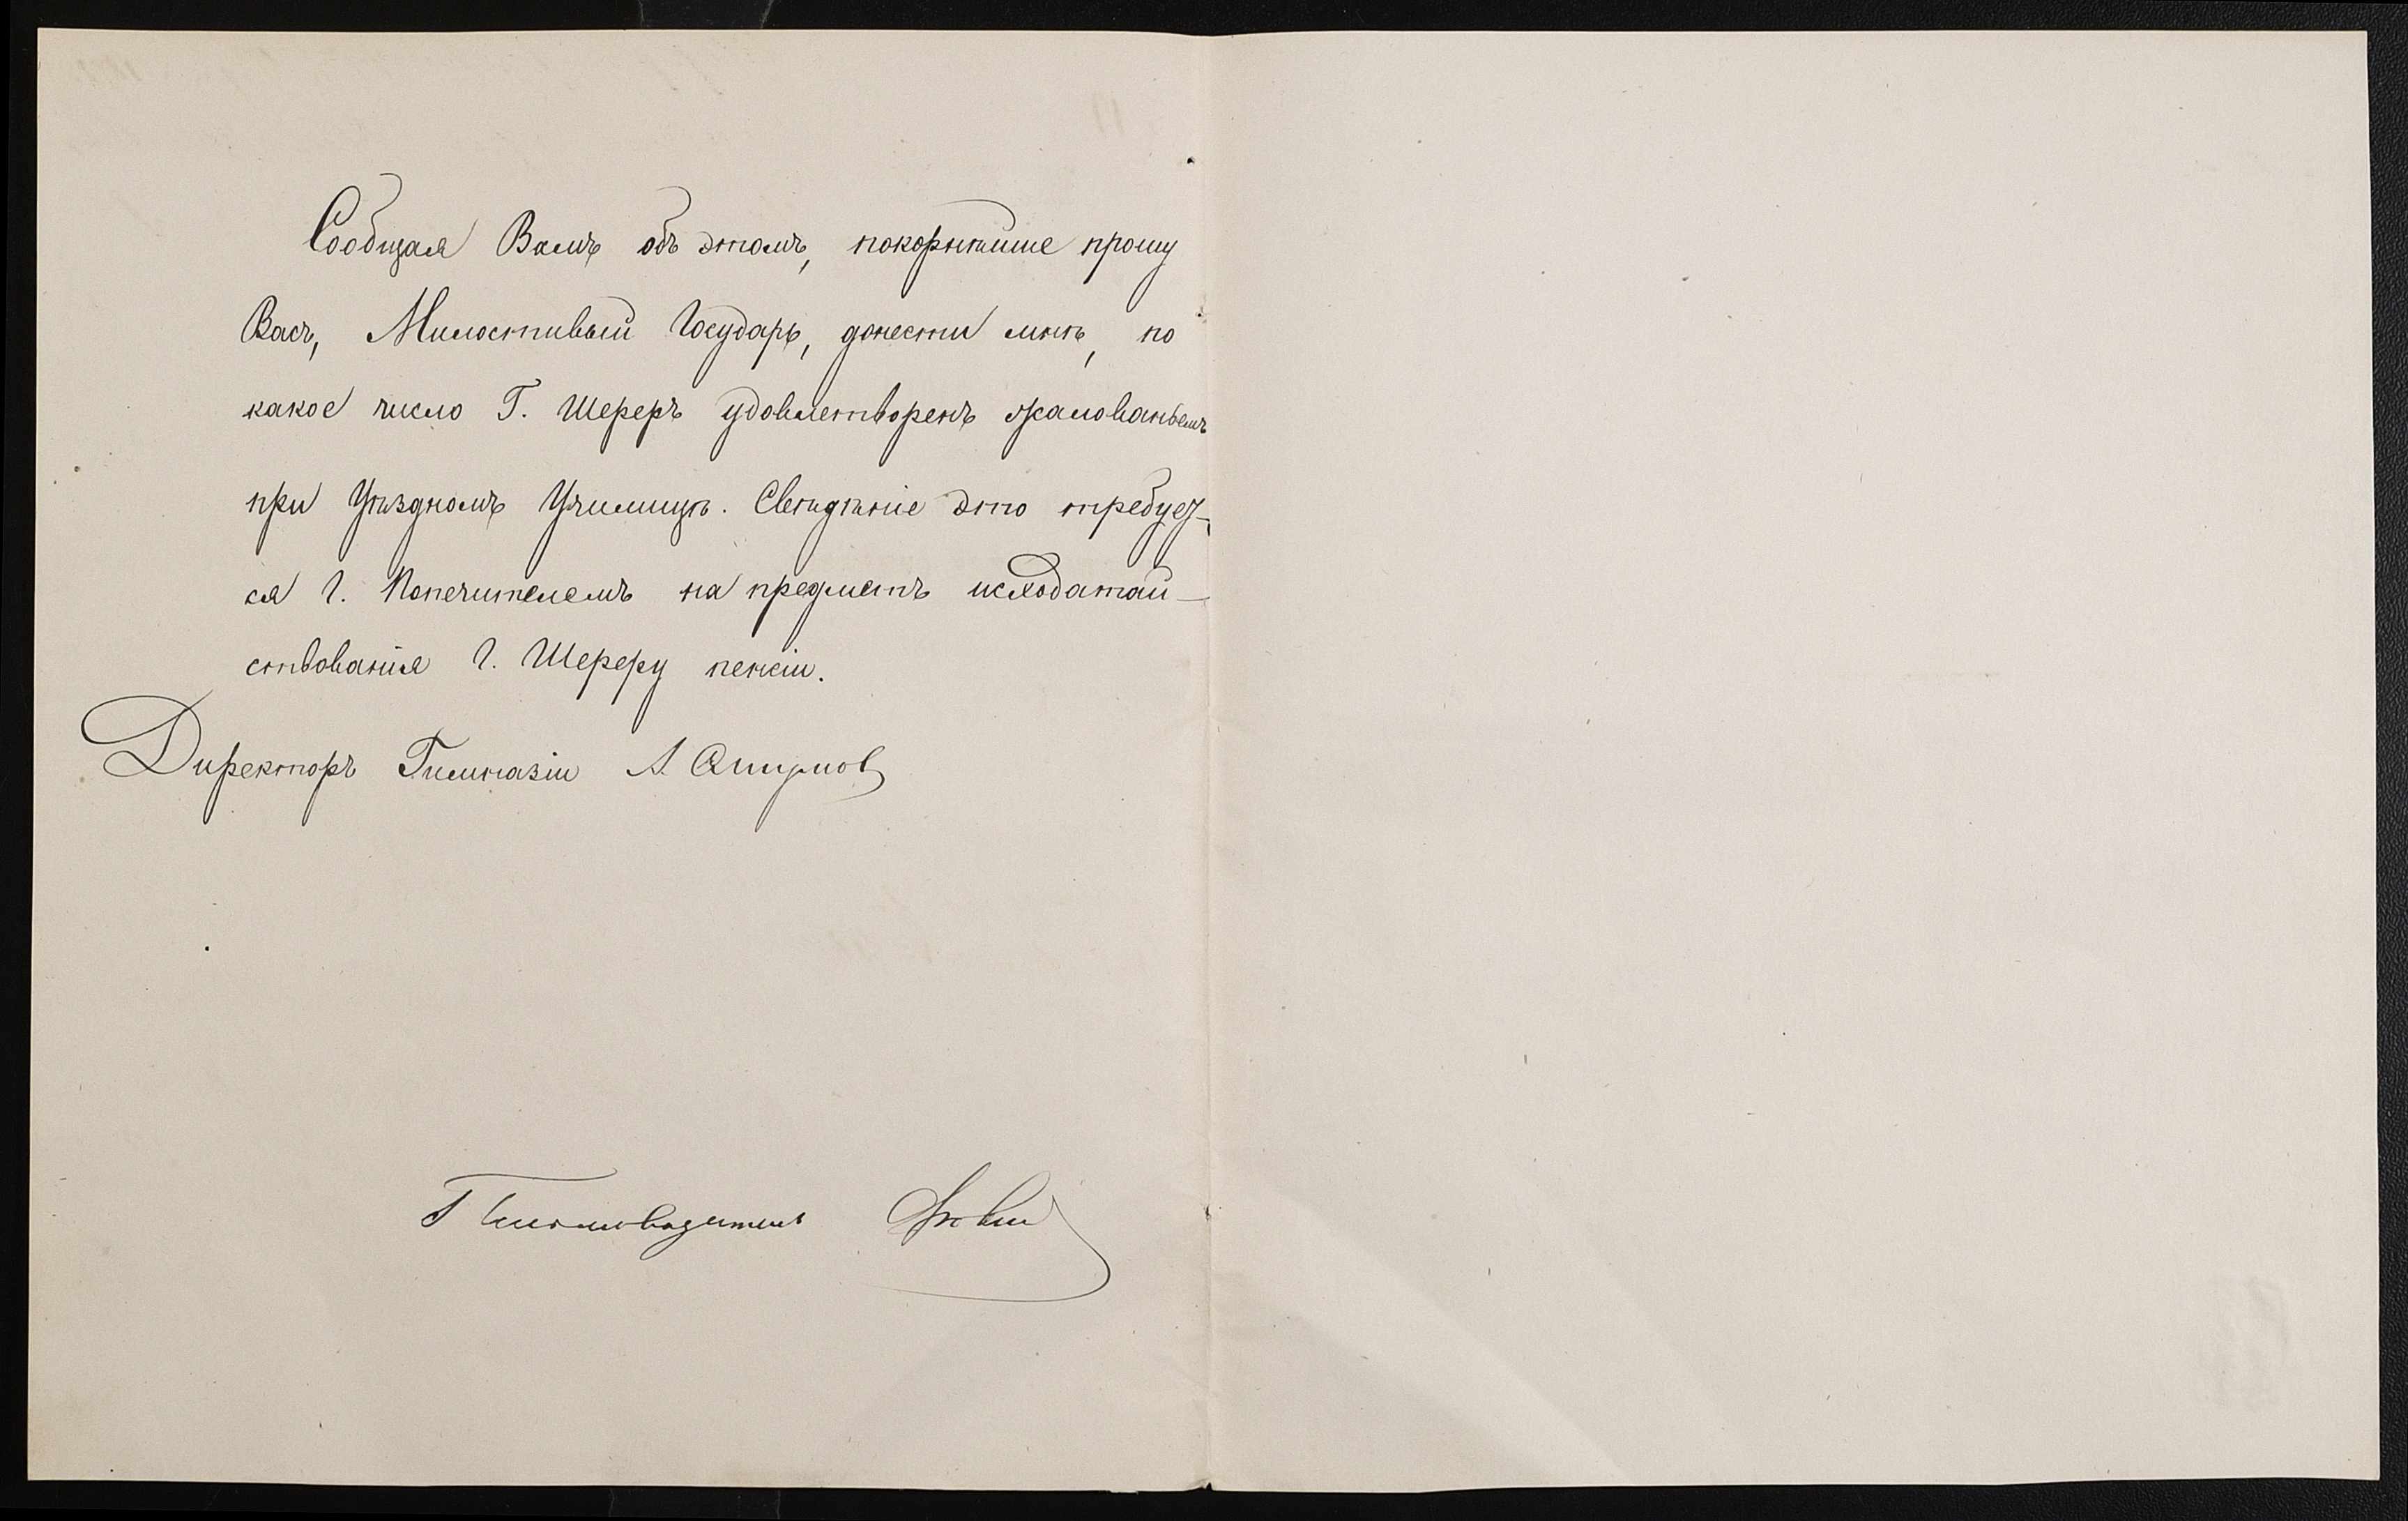 Сообщая Вамъ объ этомъ, покорнѣйше прошу
Васъ, Милостивый Государь, донести мнѣ, по
какое число Г. Шереръ удовлетворенъ жалованьемъ
при Уѣздномъ Училищѣ. Свѣдѣніе это требует-
ся Г. Попечителемъ на предметъ исходатай-
ствованія Г. Шереру пенсіи.
Директоръ Гимназіи А. Смирнов
Письмоводитель